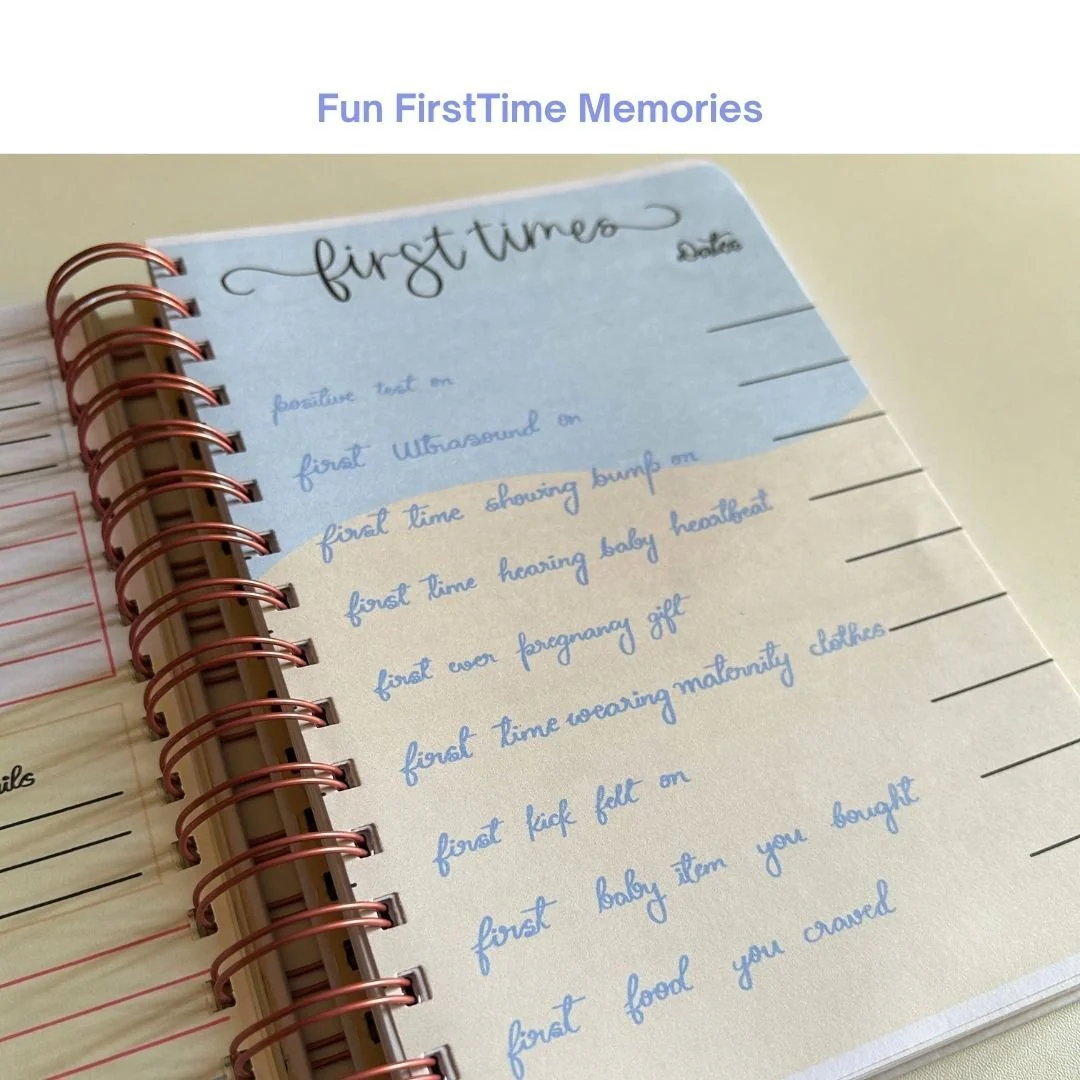 Fun FirstTime Memories
first times
Dates
positive test on
first Ultrasound on
first time showing bump on
first time hearing baby heartbeat
first ever pregnancy gift
first time wearing maternity clothes
first kick felt on
first baby item you bought
first food you craved
ils